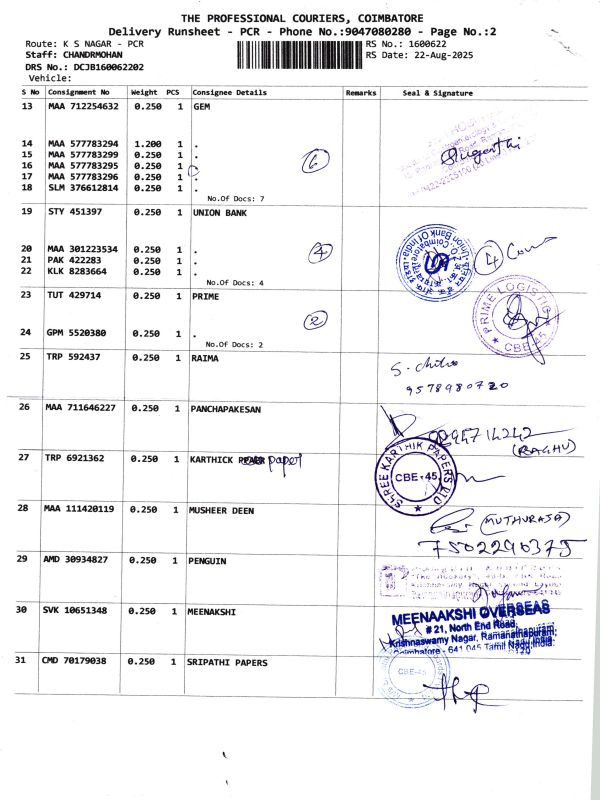 THE PROFESSIONAL COURIERS, COIMBATORE
Delivery Runsheet - PCR - Phone No.:9047080280 - Page No.:2
Route: K S NAGAR - PCR RS No.: 1600622
Staff: CHANDRMOHAN RS Date: 22-Aug-2025
DRS No.: DCJB160062202
Vehicle:
S No Consignment No Weight PCS Consignee Details Remarks Seal & Signature
13 MAA 712254632 0.250 1 GEM
14 MAA 577783294 1.200 1 .
15 MAA 577783299 0.250 1 .
16 MAA 577783295 0.250 1 . 6
17 MAA 577783296 0.250 1 .
18 SLM 376612814 0.250 1 .
No.Of Docs: 7
19 STY 451397 0.250 1 UNION BANK
20 MAA 301223534 0.250 1 . 4 4
21 PAK 422283 0.250 1 .
22 KLK 8283664 0.250 1 .
No.Of Docs: 4
Union Bank Of India
23 TUT 429714 0.250 1 PRIME
2
24 GPM 5520380 0.250 1 .
No.Of Docs: 2
PRIME LOGISTIC
CBE-45
25 TRP 592437 0.250 1 RAIMA
9578980720
26 MAA 711646227 0.250 1 PANCHAPAKESAN
(RAGHU)
27 TRP 6921362 0.250 1 KARTHICK paper
SREE KARTHIK PAPERS LTD
CBE-45
28 MAA 111420119 0.250 1 MUSHEER DEEN
(MUTHURAJA)
7502290375
29 AMD 30934827 0.250 1 PENGUIN
30 SVK 10651348 0.250 1 MEENAKSHI
MEENAAKSHI OVERSEAS
# 21, North End Road,
Krishnaswamy Nagar, Ramanathapuram,
Coimbatore - 641 045 Tamil Nadu, India.
31 CMD 70179038 0.250 1 SRIPATHI PAPERS
CBE-45